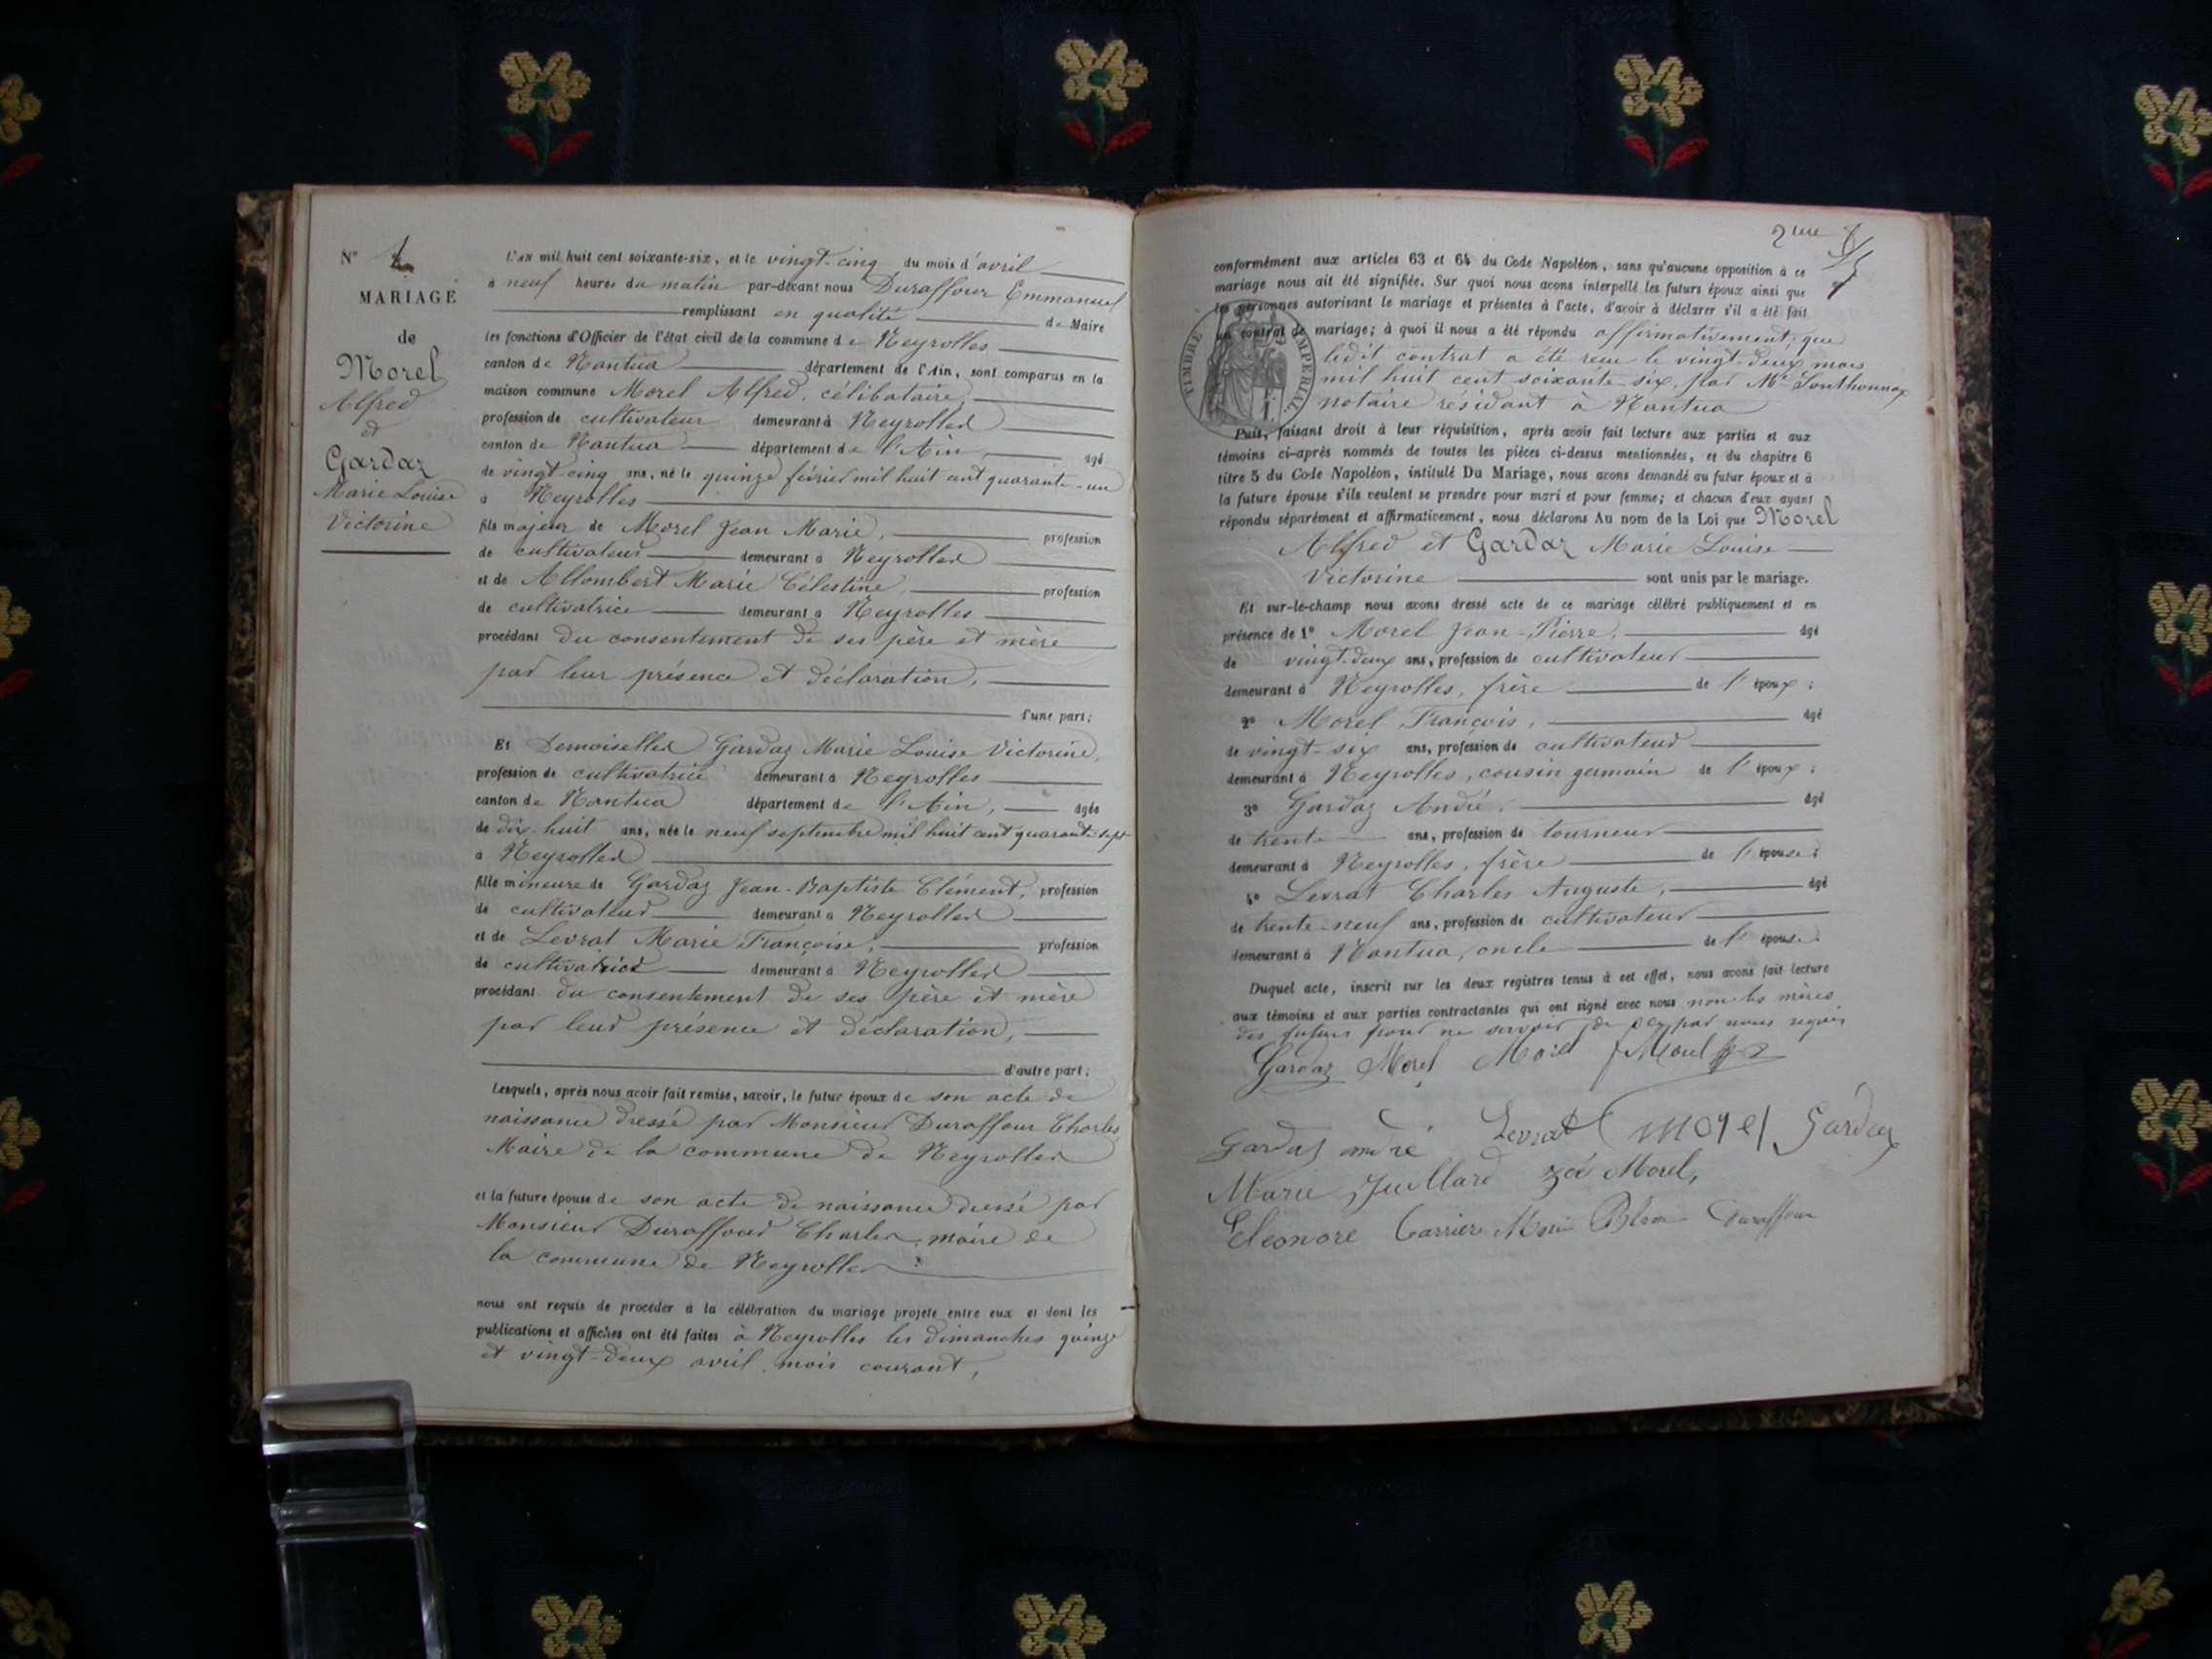 N°
MARIAGE
de
Morel
Alfred
et
Gardaz
Marie Louise
Victorine
L'an mil huit cent soixante-six, et le vingt-cinq du mois d'avril
à neuf heures du matin par-devant nous Duraffour Emmanuel
remplissant en qualité de Maire
les fonctions d'Officier de l'état civil de la commune de Neyrolles
canton de Nantua département de l'Ain, sont comparus en la
maison commune Morel Alfred, célibataire,
profession de cultivateur demeurant à Neyrolles
canton de Nantua département de l'Ain, âgé
de vingt-cinq ans, né le quinze février mil huit cent quarante-un
à Neyrolles
fils majeur de Morel Jean Marie, profession
de cultivateur demeurant à Neyrolles
et de Allombert Marie Célestine, profession
de cultivatrice demeurant à Neyrolles
procédant du consentement de ses père et mère
par leur présence et déclaration,
d'une part;
Et Demoiselle Gardaz Marie Louise Victorine,
profession de cultivatrice demeurant à Neyrolles
canton de Nantua département de l'Ain, âgée
de dix-huit ans, née le neuf septembre mil huit cent quarante-sept
à Neyrolles
fille mineure de Gardaz Jean-Baptiste Clément, profession
de cultivateur demeurant à Neyrolles
et de Levrat Marie Françoise, profession
de cultivatrice demeurant à Neyrolles
procédant du consentement de ses père et mère
par leur présence et déclaration,
d'autre part;
Lesquels, après nous avoir fait remise, savoir, le futur époux de son acte de
naissance dressé par Monsieur Duraffour Charles
Maire de la commune de Neyrolles
et la future épouse de son acte de naissance dressé par
Monsieur Duraffour Charles, maire de
la commune de Neyrolles
nous ont requis de procéder à la célébration du mariage projeté entre eux et dont les
publications et affiches ont été faites à Neyrolles les dimanches quinze
et vingt-deux avril, mois courant,
conformément aux articles 63 et 64 du Code Napoléon, sans qu'aucune opposition à ce
mariage nous ait été signifiée. Sur quoi nous avons interpellé les futurs époux ainsi que
les personnes autorisant le mariage et présentes à l'acte, d'avoir à déclarer s'il a été fait
un contrat de mariage; à quoi il nous a été répondu affirmativement, que
ledit contrat a été reçu le vingt-deux mars
mil huit cent soixante-six, par Me
notaire résidant à Nantua
TIMBRE IMPERIAL
Puis, faisant droit à leur réquisition, après avoir fait lecture aux parties et aux
témoins ci-après nommés de toutes les pièces ci-dessus mentionnées, et du chapitre 6
titre 5 du Code Napoléon, intitulé Du Mariage, nous avons demandé au futur époux et à
la future épouse s'ils veulent se prendre pour mari et pour femme; et chacun d'eux ayant
répondu séparément et affirmativement, nous déclarons Au nom de la Loi que Morel
Alfred et Gardaz Marie Louise
Victorine sont unis par le mariage.
Et sur-le-champ nous avons dressé acte de ce mariage célébré publiquement et en
présence de 1° Morel Jean-Pierre, âgé
de vingt-deux ans, profession de cultivateur
demeurant à Neyrolles, frère de l'époux;
2° Morel François, âgé
de vingt-six ans, profession de cultivateur
demeurant à Neyrolles, cousin germain de l'époux;
3° Gardaz André, âgé
de trente ans, profession de tourneur
demeurant à Neyrolles, frère de l'épouse;
4° Levrat Charles Auguste, âgé
de trente-neuf ans, profession de cultivateur
demeurant à Nantua, oncle de l'épouse.
Duquel acte, inscrit sur les deux registres tenus à cet effet, nous avons fait lecture
aux témoins et aux parties contractantes qui ont signé avec nous non les mères
des futurs pour ne savoir, de ce par nous requis
Gardaz Morel Morel
Gardaz andré Levrat morel Gardaz
Marie Juillard zoé Morel,
Eleonore Carrier Duraffour